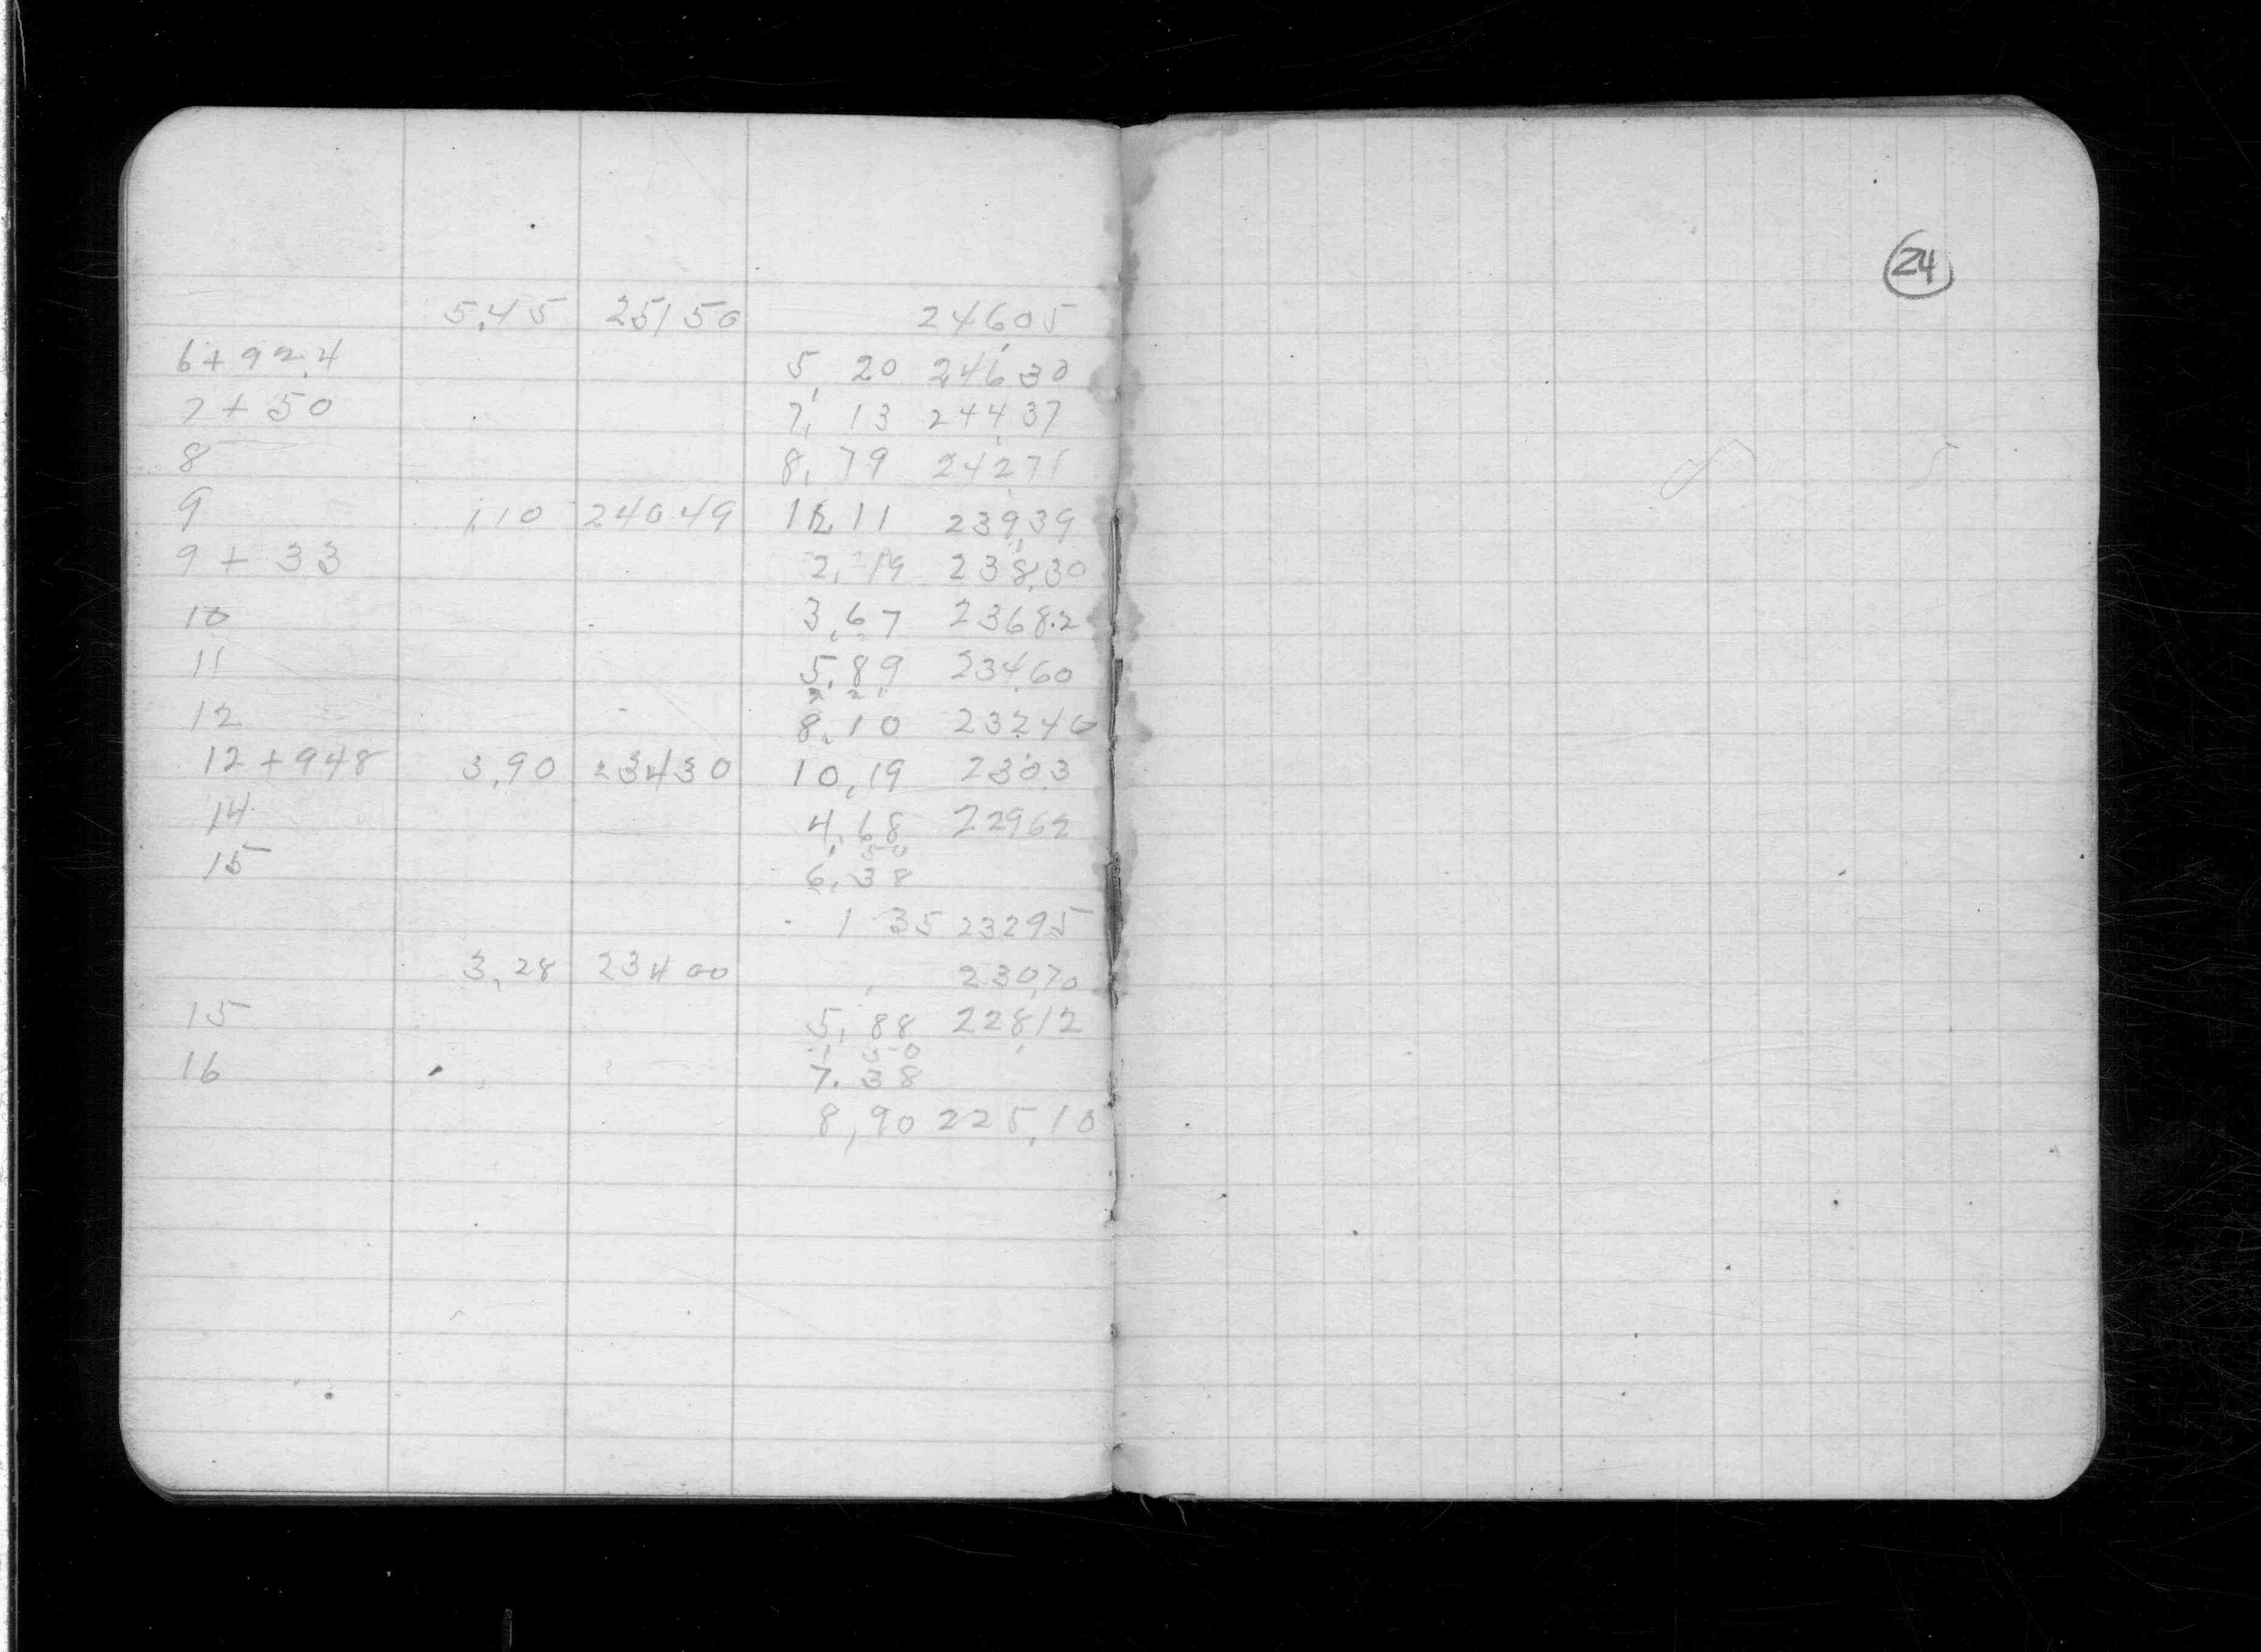 5.45 25150 24605
6+92.4 5,20 24630
7+50 7,13 24437
8 8,79 24271
9 1,10 24049 11 23939
9+33 2,19 23830
10 3,67 2368.2
11 5,89 23460
2 2 1
12 8,10 23240
12+948 3,90 23430 10,19 2303
14 4,68 22962
15 6,38
1 35 23295
3,28 23400 230,70
15 5,88 22812
1 50
16 7.38
8,90 225,10
24